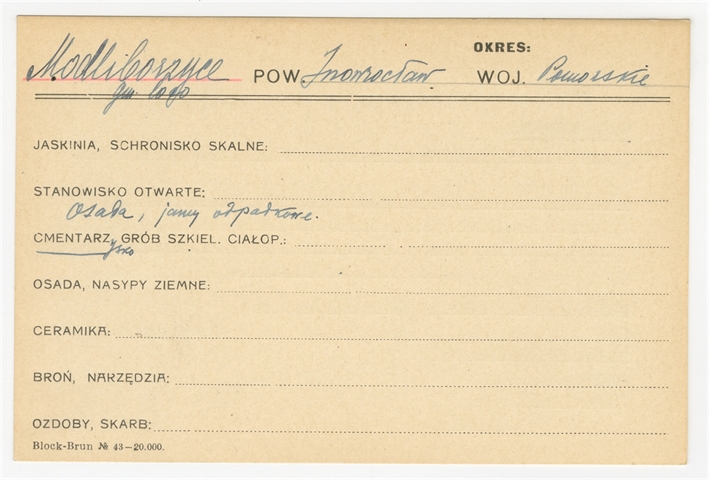 OKRES:
Modliborzyce POW. Inowrocław WOJ. Pomorskie
gm.
JASKINIA, SCHRONISKO SKALNE:
STANOWISKO OTWARTE:
Osada, jamy odpadkowe.
CMENTARZ, GRÓB SZKIEL. CIAŁOP.:
ysko
OSADA, NASYPY ZIEMNE:
CERAMIKA:
BROŃ, NARZĘDZIA:
OZDOBY, SKARB:
Block-Brun № 43—20.000.